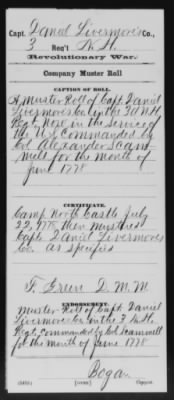 Capt. Daniel Livermore's Co.,
3 Reg't N.H.
Revolutionary War.
Company Muster Roll
CAPTION OF ROLL.
A Muster Roll of Capt. Daniel
Livermores Co in the 3d N.H.
Regt Now in the Service of
the U.S. Commanded by
Col Alexander Scam-
mell for the month of
June 1778
CERTIFICATE.
Camp North Castle July
22, 1778, then Mustered
Capt. Daniel Livermores
Co. As Specified
F. Green D. M. M
ENDORSEMENT.
Muster Roll of Capt. Daniel
Livermores Co in the 3 N.H.
Regt. Commanded by Col Scammell
for the month of June 1778
Bogan
Copyist.